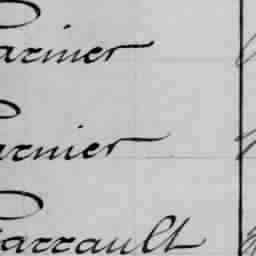 Garnier
Garnier
Garrault